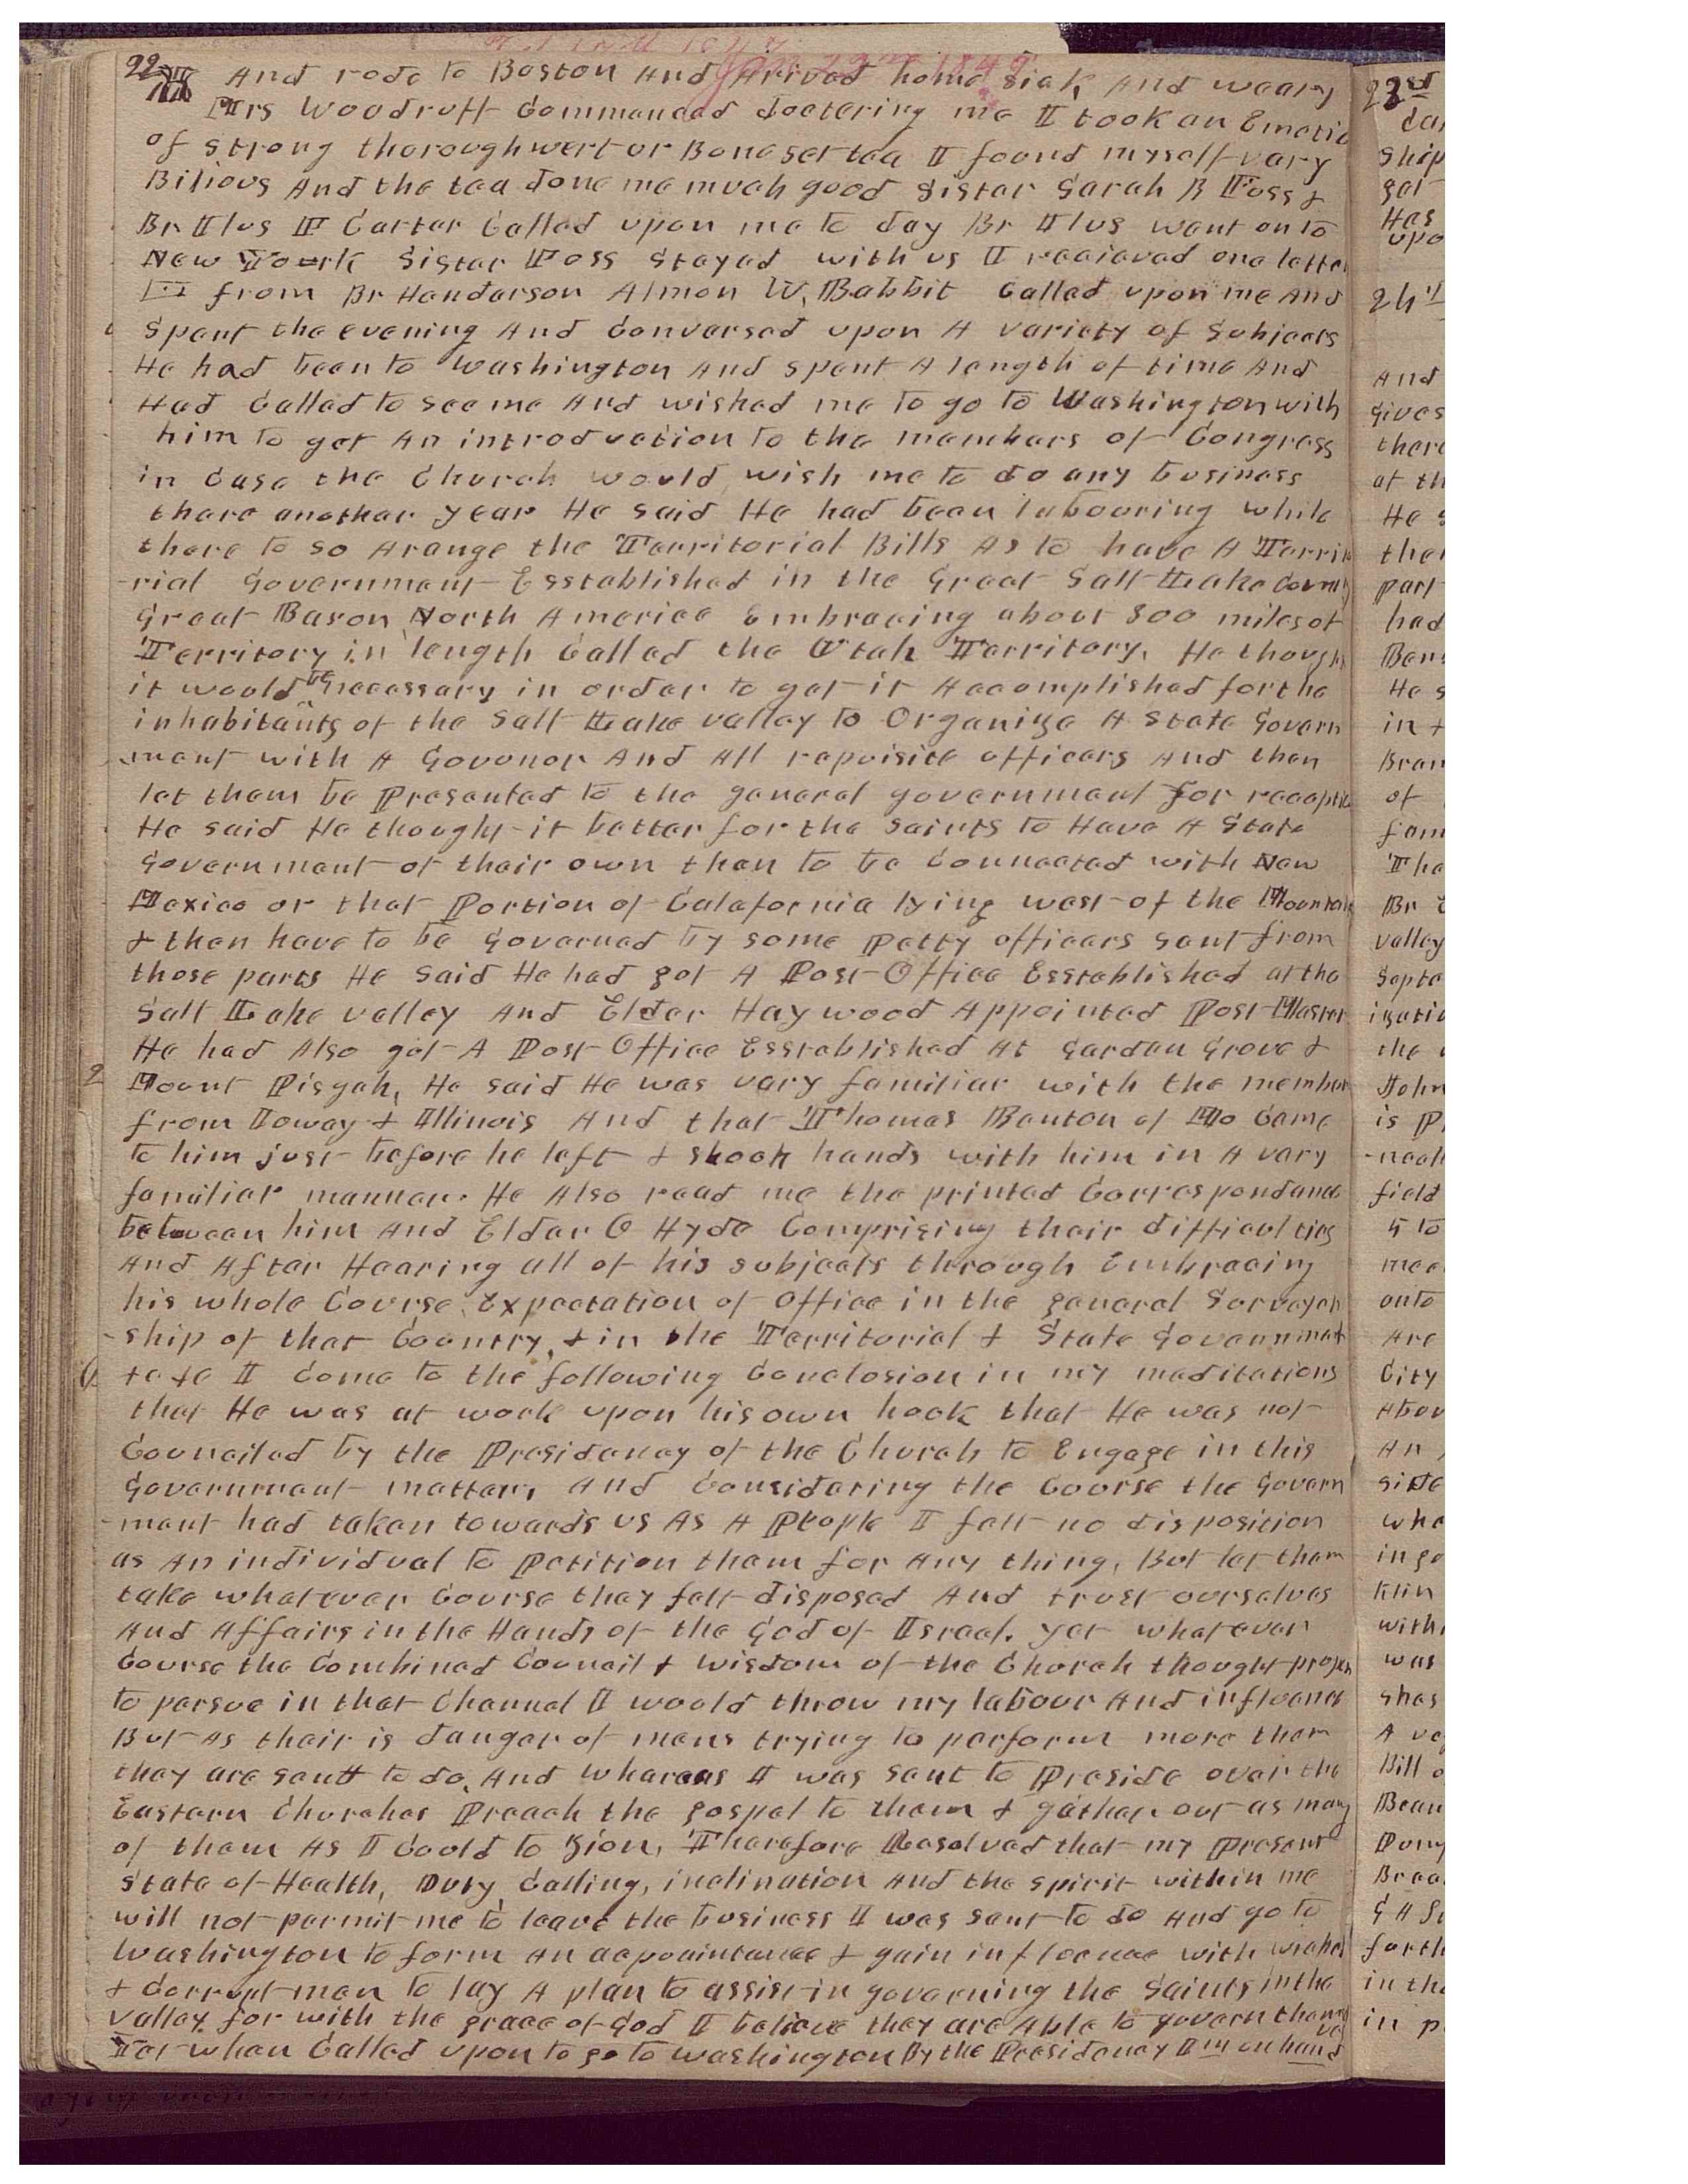 Jan 22nd 1849
22nd And rode to Boston And Arived home sick And weary
Mrs Woodruff Commenced doctering me I took an Emetic
of strong thoroughwert or Boneset tea I found myself very
Bilious And the tea done me much good Sister Sarah B Foss &
Br Ilus F Carter Called upon me to day Br Ilus went on to
New York Sister Foss Stayed with us I recieved one letter
from Br Henderson Almon W. Babbit Called upon me And
Spent the evening And Conversed upon A variety of Subjects
He had been to Washington And spent A length of time And
Had Called to see me And wished me to go to Washington with
him to get An introduction to the members of Congress
in Case the Church would wish me to do any business
there another year He said He had been labouring while
there to so Arange the Territorial Bills As to have A Territo
-rial Government Esstablished in the Great Salt Lake County
Great Bason North America Embracing about 800 miles of
Territory in length Called the Utah Territory. He though
it would be necessary in order to get it Accomplished for the
inhabitants of the Salt Lake valley to Organize A State Govern
-ment with A Govonor And All requisite officers And then
let them be Presented to the general government for reception
He said He thought it better for the Saints to Have A State
Government of their own then to be Connected with New
Mexico or that Portion of Calafornia lying west of the Mountains
& then have to be Governed by some Petty officers sent from
those parts He said He had got A Post Office Esstablished at the
Salt Lake valley And Elder Haywood Appointed Post Master
He had Also got A Post Office Esstablished At Garden Grove &
Mount Pisgah, He said He was vary familiar with the member
from Ioway & Illinois And that Thomas Benton of Mo Came
to him just before he left & shook hands with him in A vary
familiar manner. He Also read me the printed Correspondance
between him And Elder O Hyde Comprising their difficulties
And After Hearing all of his subjects through Embracing
his whole Course, Expectation of Office in the general Surveyor
-ship of that Country, & in the Territorial & State Government
&c &c I Come to the following Conclusion in my meditations
that He was at work upon his own hook that He was not
Counciled by the Presidency of the Church to Engage in this
Government matter, And Considering the Course the Govern
-ment had taken towards us As A People I felt no disposition
as An individual to Petition them for Any thing, But let them
take whatever Course they felt disposed And trust ourselves
And Affairs in the Hands of the God of Israel. yet whatever
Course the Combined Council & wisdom of the Church thought proper
to persue in that Channel I would throw my labour And influence
But As their is danger of mens trying to perform more than
they are sent to do, And whareas I was sent to Preside over the
Eastern Churches Preach the gospel to them & gather out as many
of them As I Could to Zion, Therefore Resolved that my Present
State of Health, Duty, Calling, inclination And the spirit within me
will not permit me to leave the business I was sent to do And go to
Washington to form An acquaintance & gain influence with wicked
& Corrupt men to lay A plan to assist in governing the Saints in the
valley for with the grace of God I believe they are Able to govern themselves
Yet when Called upon to go to Washington By the Presidency I am on hand
23rd
ship
Has
upo
24th
And
gives
there
at th
He s
part
had
He s
in
of
Br
valley
Septe
the
John
is
field
4 to
onto
Are
City
Abov
An
with
was
A
Bill
in the
in p